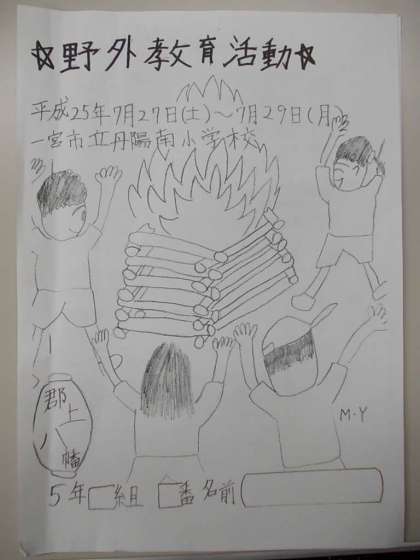 ☆野外教育活動☆
平成25年7月27日(土)～7月29日(月)
一宮市立丹陽南小学校
M-Y
郡上
八幡
5年□組 □番名前